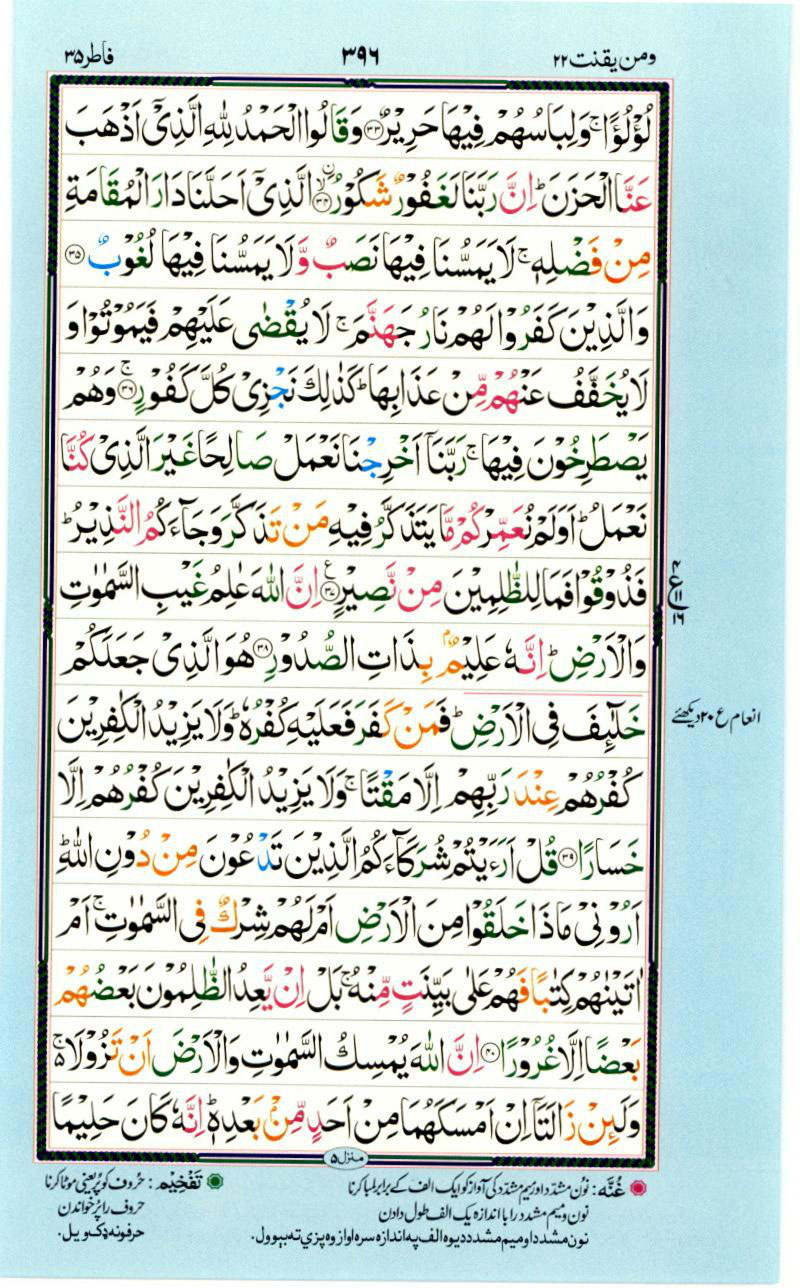 ومن یقنت ۲۲
۳۹۶
فاطر ۳۵
لُؤْلُؤًا ۚ وَلِبَاسُهُمْ فِيْهَا حَرِيْرٌ ﴿۳۳﴾ وَقَالُوا الْحَمْدُ لِلّٰهِ الَّذِیْۤ اَذْهَبَ
عَنَّا الْحَزَنَ ؕ اِنَّ رَبَّنَا لَغَفُوْرٌ شَكُوْرُ ۟ۙ﴿۳۴﴾ الَّذِیْۤ اَحَلَّنَا دَارَ الْمُقَامَةِ
مِنْ فَضْلِهٖ ۚ لَا يَمَسُّنَا فِيْهَا نَصَبٌ وَّلَا يَمَسُّنَا فِيْهَا لُغُوْبٌ ﴿۳۵﴾
وَالَّذِيْنَ كَفَرُوْا لَهُمْ نَارُ جَهَنَّمَ ۚ لَا يُقْضٰى عَلَيْهِمْ فَيَمُوْتُوْا وَ
لَا يُخَفَّفُ عَنْهُمْ مِّنْ عَذَابِهَا ؕ كَذٰلِكَ نَجْزِیْ كُلَّ كَفُوْرٍ ۚ﴿۳۶﴾ وَهُمْ
يَصْطَرِخُوْنَ فِيْهَا ۚ رَبَّنَاۤ اَخْرِجْنَا نَعْمَلْ صَالِحًا غَيْرَ الَّذِیْ كُنَّا
نَعْمَلُ ؕ اَوَلَمْ نُعَمِّرْكُمْ مَّا يَتَذَكَّرُ فِيْهِ مَنْ تَذَكَّرَ وَجَآءَكُمُ النَّذِيْرُ ؕ
فَذُوْقُوْا فَمَا لِلظّٰلِمِيْنَ مِنْ نَّصِيْرٍ ﴿۳۷﴾ ع اِنَّ اللّٰهَ عٰلِمُ غَيْبِ السَّمٰوٰتِ
ع
۴
۱۱
۱۶
وَالْاَرْضِ ؕ اِنَّهٗ عَلِيْمٌۢ بِذَاتِ الصُّدُوْرِ ﴿۳۸﴾ هُوَ الَّذِیْ جَعَلَكُمْ
خَلٰٓئِفَ فِی الْاَرْضِ ؕ فَمَنْ كَفَرَ فَعَلَيْهِ كُفْرُهٗ ؕ وَلَا يَزِيْدُ الْكٰفِرِيْنَ
انعام ع ۲۰ دیکھئے
كُفْرُهُمْ عِنْدَ رَبِّهِمْ اِلَّا مَقْتًا ۚ وَلَا يَزِيْدُ الْكٰفِرِيْنَ كُفْرُهُمْ اِلَّا
خَسَارًا ﴿۳۹﴾ قُلْ اَرَءَيْتُمْ شُرَكَآءَكُمُ الَّذِيْنَ تَدْعُوْنَ مِنْ دُوْنِ اللّٰهِ ؕ
اَرُوْنِیْ مَاذَا خَلَقُوْا مِنَ الْاَرْضِ اَمْ لَهُمْ شِرْكٌ فِی السَّمٰوٰتِ ۚ اَمْ
اٰتَيْنٰهُمْ كِتٰبًا فَهُمْ عَلٰى بَيِّنَتٍ مِّنْهُ ۚ بَلْ اِنْ يَّعِدُ الظّٰلِمُوْنَ بَعْضُهُمْ
بَعْضًا اِلَّا غُرُوْرًا ﴿۴۰﴾ اِنَّ اللّٰهَ يُمْسِكُ السَّمٰوٰتِ وَالْاَرْضَ اَنْ تَزُوْلَا ۚ۬
وَلَئِنْ زَالَتَاۤ اِنْ اَمْسَكَهُمَا مِنْ اَحَدٍ مِّنْۢ بَعْدِهٖ ؕ اِنَّهٗ كَانَ حَلِيْمًا
منزل ۵
غُنَّه : نون مشدّد اور میم مشدّد کی آواز کو ایک الف کے برابر لمبا کرنا
نون و میم مشدد را با اندازه یک الف طول دادن
نون مشدد او میم مشدد د یوه الف په اندازه سره اواز وه پزې ته بېوول.
تَفْخِیْم : حروف کو پُر یعنی موٹا کرنا
حروف را پُر خواندن
حرفونه ډک ویل.